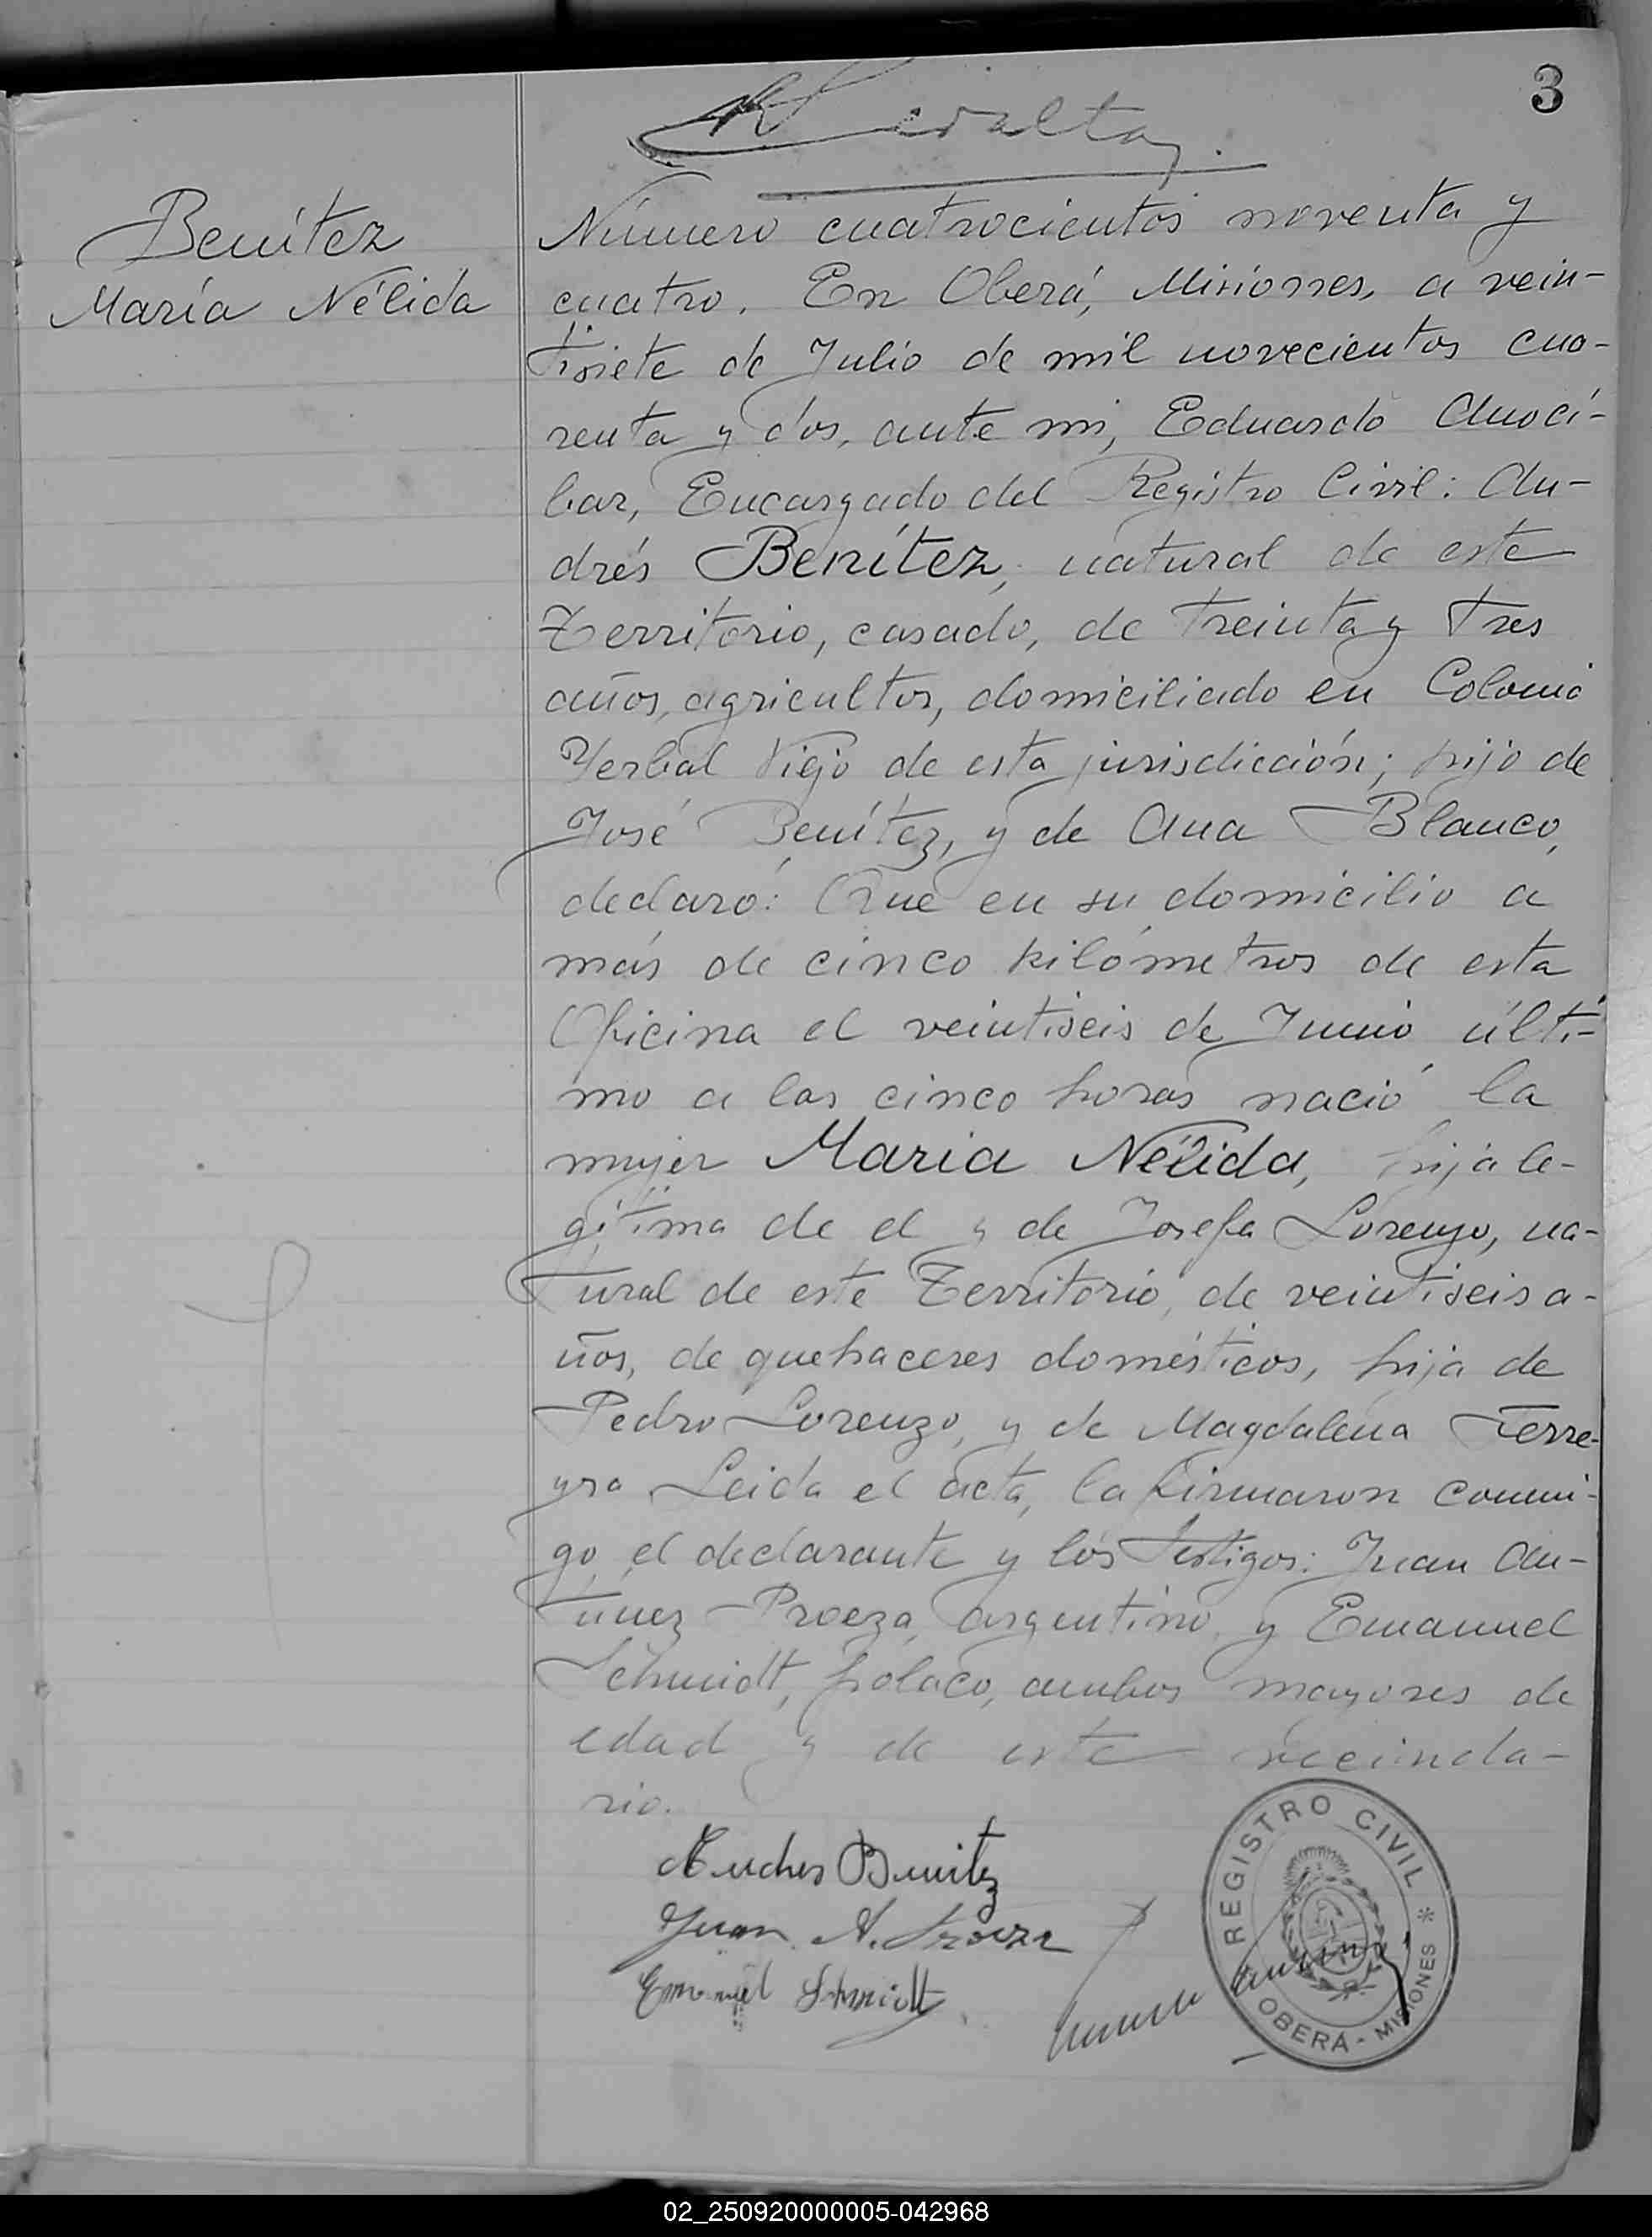 3
Peralta
Benítez
María Nélida
Número cuatrocientos noventa y
cuatro. En Oberá, Misiones, a vein-
tisiete de Julio de mil novecientos cua-
renta y dos, ante mi, Eduardo Anocí-
bar, Encargado del Registro Civil: An-
drés Benítez, natural de este
Territorio, casado, de treinta y tres
años, agricultor, domiciliado en Colonia
Yerbal Viejo de esta jurisdicción; hijo de
José Benítez, y de Ana Blanco,
declaró: Que en su domicilio a
más de cinco kilómetros de esta
Oficina el veintiseis de Junio últi-
mo a las cinco horas nació la
mujer María Nélida, hija le-
gítima de el y de Josefa Lorenzo, na-
tural de este Territorio, de veintiseis a-
ños, de quehaceres domésticos, hija de
Pedro Lorenzo, y de Magdalena Ferre-
yra Leida el acta, la firmaron conmi-
go, el declarante y los testigos: Juan An-
túnez Proeza, argentino, y Emanuel
Schmidt, polaco, ambos mayores de
edad y de este vecinda-
rio.
Andres Benitez
Juan A. Proeza
Emanuel Schmidt
REGISTRO CIVIL *
OBERÁ - MISIONES
02_250920000005-042968